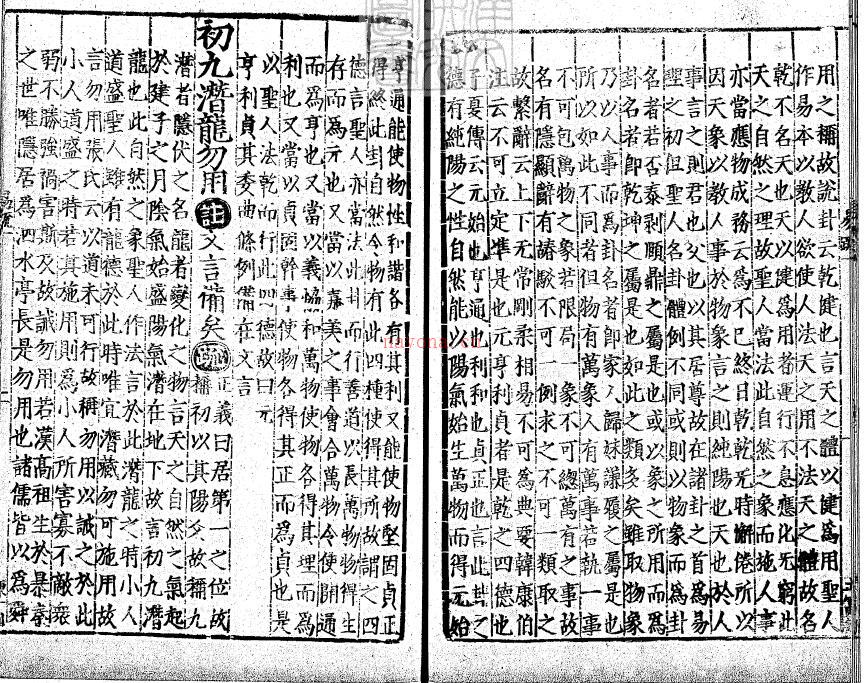 用之稱故說卦云乾健也言天之體以健爲用聖人
作易本以教人欲使人法天之用不法天之體故名
乾不名天也天以健爲用者運行不息應化无窮此
天之自然之理故聖人當法此自然之象而施人事
亦當應物成務云爲不已終日乾乾无時懈倦所以
因天象以教人事於物象言之則純陽也天也於人
事言之則君也父也以其居尊故在諸卦之首爲易
理之初但聖人名卦體例不同或則以物象而爲卦
名者若否泰剥頤鼎之屬是也或以象之所用而爲
卦名者若卽乾坤之屬是也如此之類多矣雖取物象
乃以人事而爲卦名者卽家人歸妹謙履之屬是也
所以如此不同者但物有萬象人有萬事若執一事
不可包萬物之象若限局一象不可總萬有之事故
名有隱顯辭有踳駮不可一例求之不可一類取之
故繫辭云上下无常剛柔相易不可爲典要韓康伯
注云不可立定準是也元亨利貞者是乾之四德也
子夏傳云元始也亨通也利和也貞正也言此卦之
德有純陽之性自然能以陽氣始生萬物而得元始
亨通能使物性和諧各有其利又能使物堅固貞正
得終此卦自然令物有此四種使得其所故謂之四
德言聖人亦當法此卦而行善道以長萬物物得生
存而爲元也又當以嘉美之事會合萬物令使開通
而爲亨也又當以義協和萬物使物各得其理而爲
利也又當以貞固幹事使物各得其正而爲貞也是
以聖人法乾而行此四德故曰元
亨利貞其委曲條例備在文言
初九潛龍勿用 註 文言備矣 正義曰居第一之位故
稱初以其陽爻故稱九
潛者隱伏之名龍者變化之物言天之自然之氣起
於建子之月陰氣始盛陽氣潛在地下故言初九潛
龍也此自然之象聖人作法言於此潛龍之時小人
道盛聖人雖有龍德於此時唯宜潛藏勿可施用故
言勿用張氏云以道未可行故稱勿用以誡之於此
小人道盛之時若其施用則爲小人所害寡不敵衆
弱不勝強禍害斯及故誡勿用若漢高祖生於暴秦
之世唯隱居爲泗水亭長是勿用也諸儒皆以爲舜